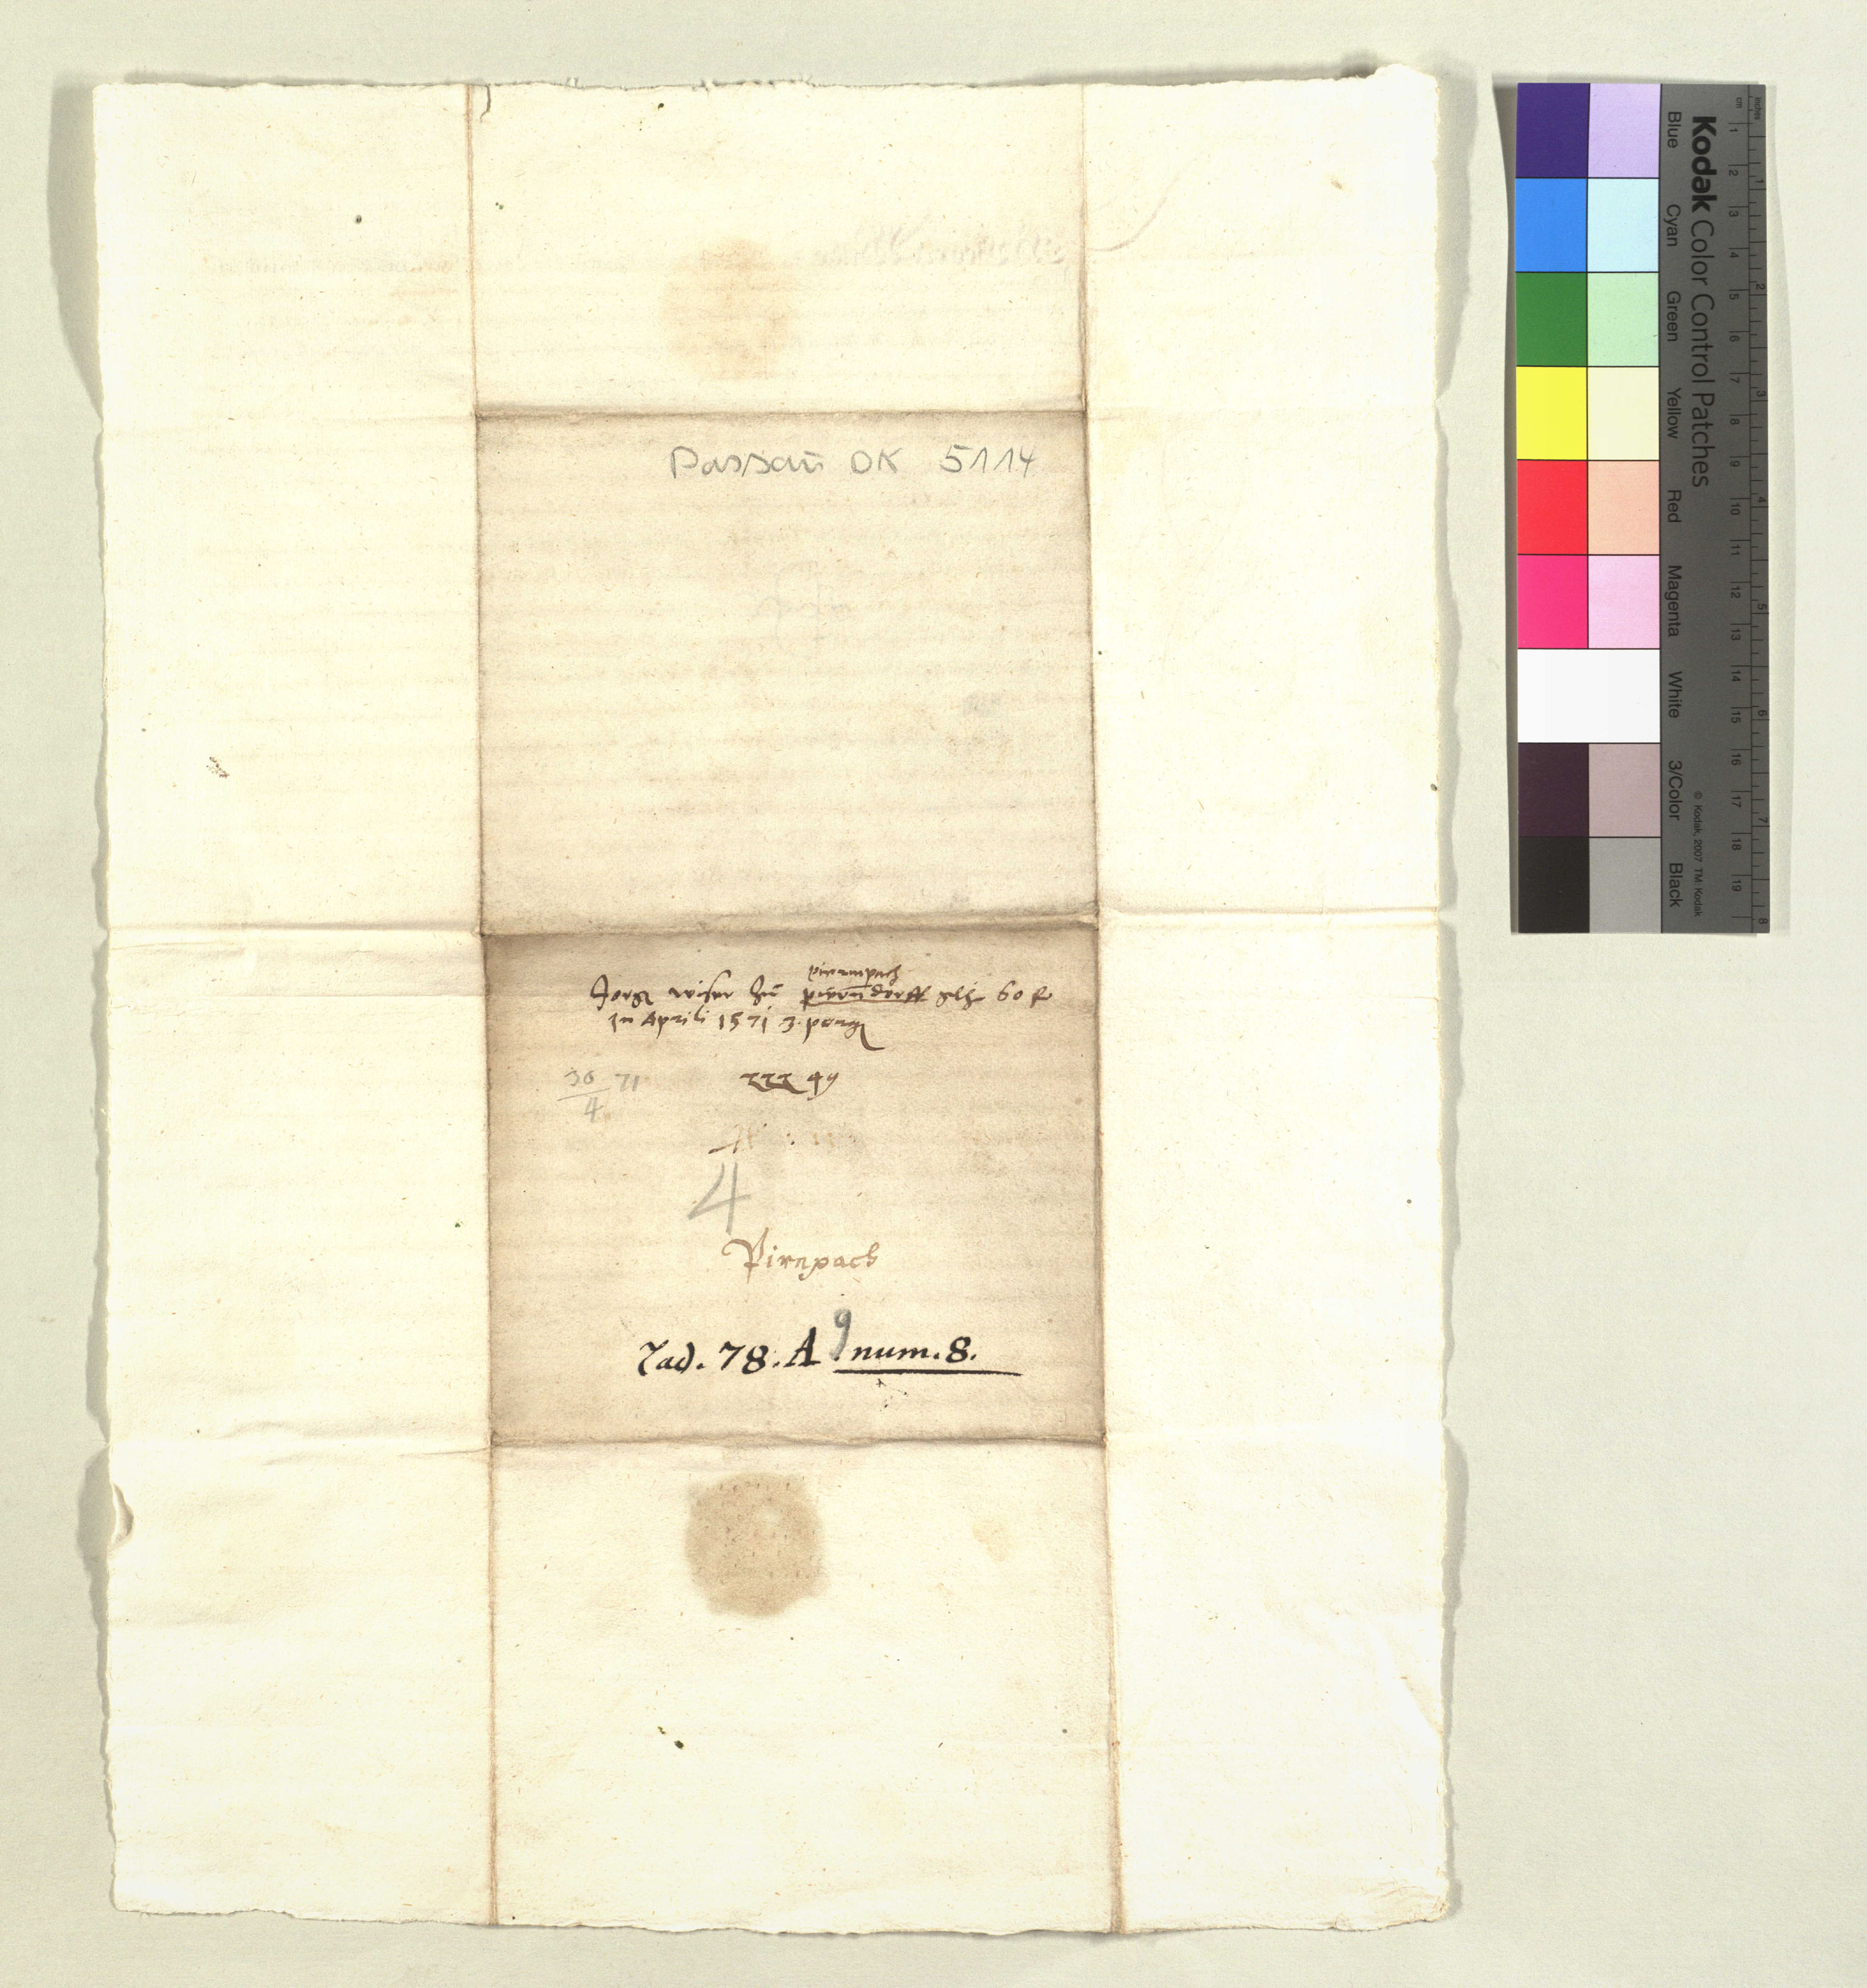 Passau DK 5114
pirnnpach
Jorg wiser zu pirndorff 60 fl
In Aprili 1571 3.
30 71
4
49
4
Pirnpach
Lad. 78. A 9 num. 8.
Kodak Color Control Patches
Blue Cyan Green Yellow Red Magenta White 3/Color Black
© Kodak, 2007 TM: Kodak
inches 1 2 3 4 5 6 7 8
cm 1 2 3 4 5 6 7 8 9 10 11 12 13 14 15 16 17 18 19